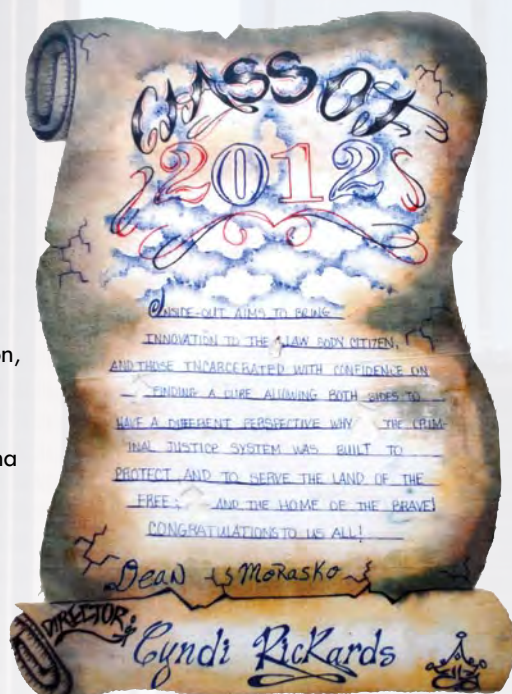 CLASS OF
2012
INSIDE-OUT AIMS TO BRING
INNOVATION TO THE LAW BODY CITIZEN,
AND THOSE INCARCERATED WITH CONFIDENCE ON
FINDING A CURE ALLOWING BOTH SIDES TO
HAVE A DIFFERENT PERSPECTIVE WHY THE CRIM-
INAL JUSTICE SYSTEM WAS BUILT TO
PROTECT AND TO SERVE THE LAND OF THE
FREE; AND THE HOME OF THE BRAVE!
CONGRATULATIONS TO US ALL!
Dean MoRasko
DIRECTOR:
Cyndi RicKards
on,
na